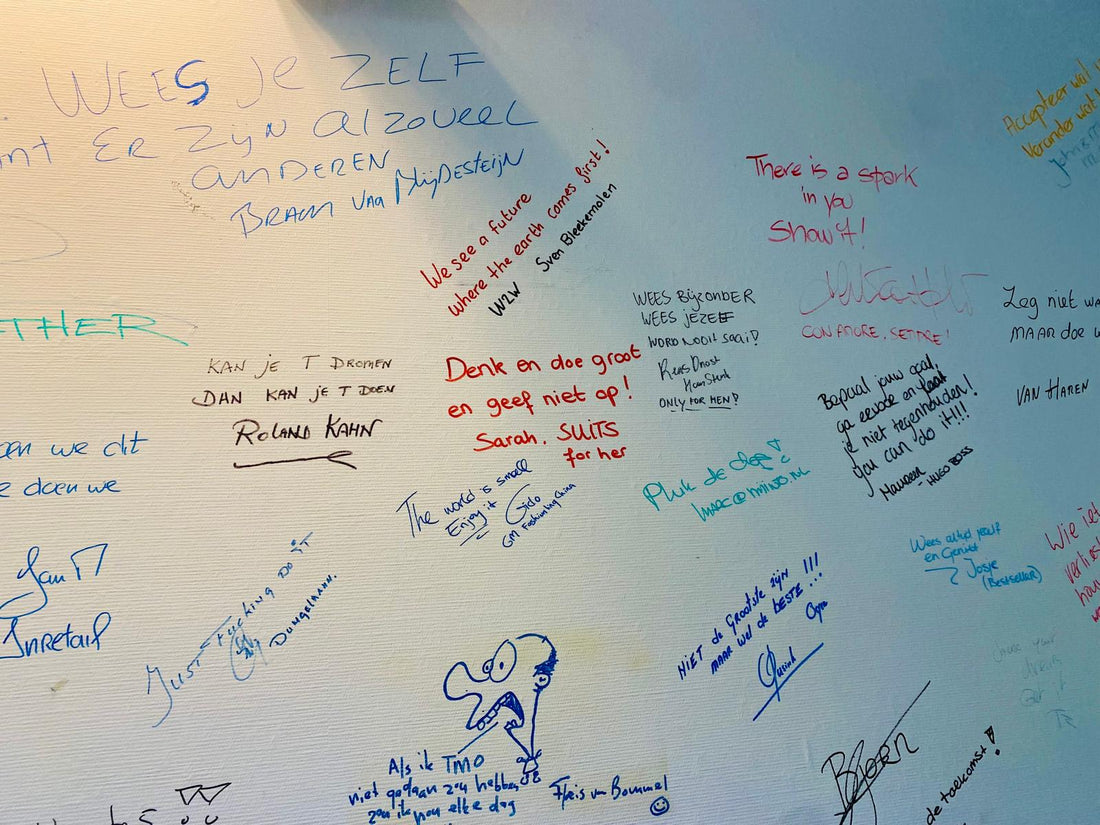 WEES JE ZELF
ER ZIJN ALZOVEEL
ANDEREN
BRAM VAN
We see a future
where the earth comes first!
W2W Sven Bleekemolen
There is a spark
in you
Show it!
Accepteer wat
Verander wat
WEES BIJZONDER
WEES JEZELF
WORD NOOIT SAAI!
ONLY FOR MEN!
CON AMORE, SEMPRE!
Zeg niet
MAAR doe
VAN HAREN
KAN JE T DROMEN
DAN KAN JE T DOEN
ROLAND KAHN
Denk en doe groot
en geef niet op!
Sarah. SUITS
for her
Bepaal jouw goal,
ga ervoor en laat
je niet tegenhouden!
You can do it!!!
Maureen - HUGO BOSS
we dit
doen we
Jan
INRetail
The world is small
Enjoy it
Guido
GM Fashion
China
Pluk de dag!
Wees altijd jezelf
en Geniet
Josje
(Bestseller)
Wie
JUST FUCKING DO IT
DUNGELMANN.
NIET de GROOTSTE ZIJN !!!
MAAR wel de BESTE !!!
Quirink
Als ik TMO
niet gedaan zou hebben
zou ik nou elke dag
Floris van Bommel
BJORN
de toekomst!